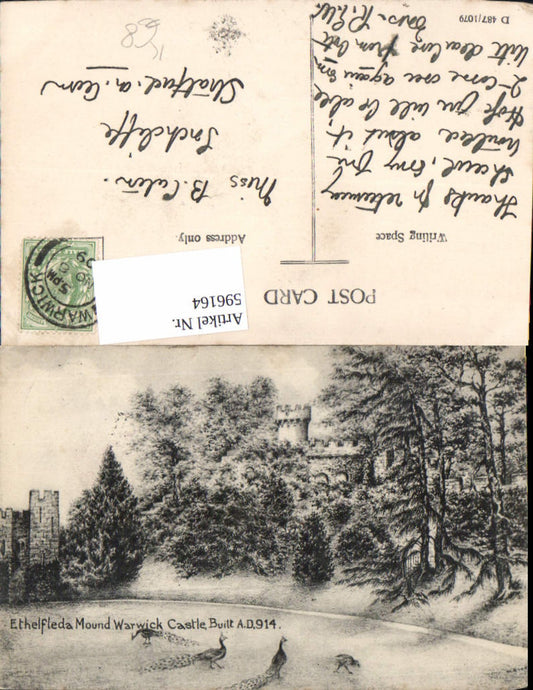 POST CARD
Writing Space
Address only.
Thanks for returning
shawl, sorry you
troubled about it,
Hope you will be able
to come over again soon
With dear love from both
Miss B.
Stratford. a. Avon
D 487/1079
WARWICK
5 PM
NO
09
Artikel Nr.
596164
Ethelfleda Mound Warwick Castle, Built A.D,914.